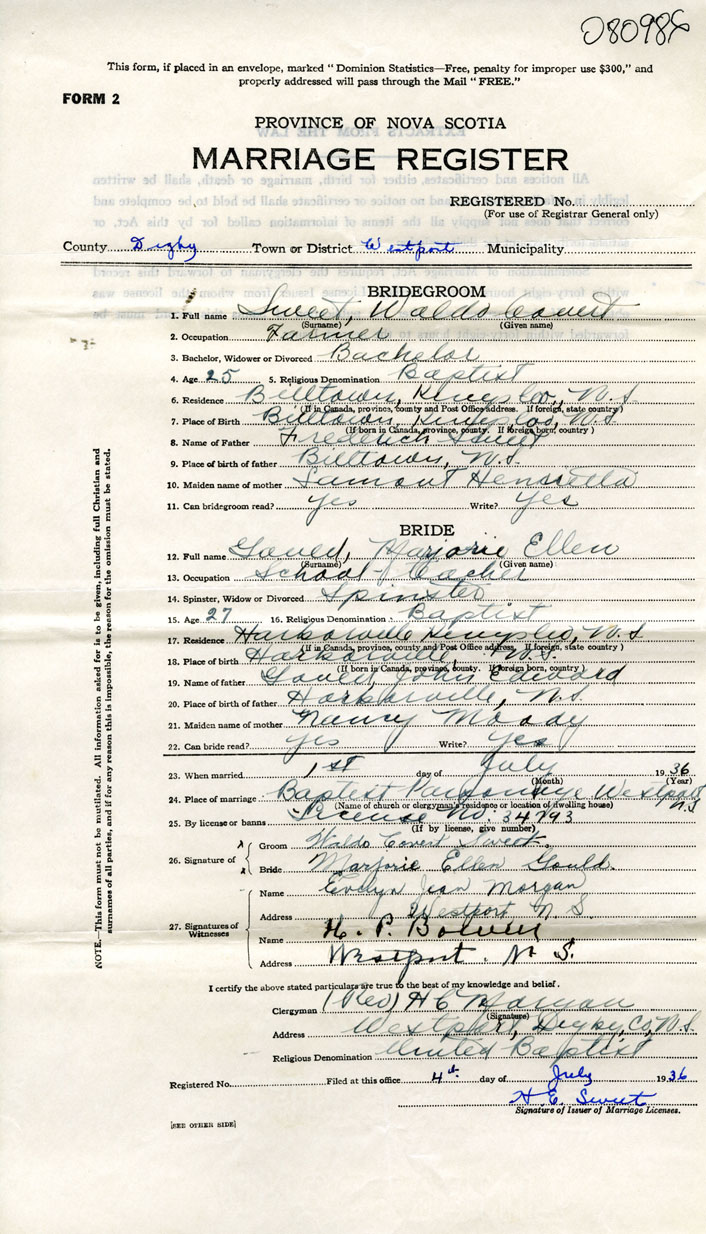 This form, if placed in an envelope, marked "Dominion Statistics—Free, penalty for improper use $300," and
properly addressed will pass through the Mail "FREE."
FORM 2
PROVINCE OF NOVA SCOTIA
MARRIAGE REGISTER
REGISTERED No.
(For use of Registrar General only)
County Digby Town or District Westport Municipality
BRIDEGROOM
1. Full name Sweet, Waldo Covert
(Surname) (Given name)
2. Occupation Farmer
3. Bachelor, Widower or Divorced Bachelor
4. Age 25 5. Religious Denomination Baptist
6. Residence Billtown, Kings Co., N.S
(If in Canada, province, county and Post Office address. If foreign, state country)
7. Place of Birth Billtown, Kings Co, N.S.
(If born in Canada, province, county. If foreign born, country)
8. Name of Father Frederick Sweet
9. Place of birth of father Billtown, N.S.
10. Maiden name of mother Lamont Henrietta
11. Can bridegroom read? yes Write? yes
BRIDE
12. Full name Marjorie Ellen
(Surname) (Given name)
13. Occupation School Teacher
14. Spinster, Widow or Divorced Spinster
15. Age 27 16. Religious Denomination Baptist
17. Residence Harborville Kings Co, N.S
(If in Canada, province, county and Post Office address, If foreign, state country)
18. Place of birth Harborville, N.S.
(If born in Canada, province, county. If foreign born, country)
19. Name of father John Edward
20. Place of birth of father Harborville, N.S.
21. Maiden name of mother Nancy Moody
22. Can bride read? yes Write? yes
23. When married 1st day of July 1936
(Month) (Year)
24. Place of marriage Baptist Parsonage Westport N.S
(Name of church or clergyman's residence or location of dwelling house)
25. By license or banns License No. 34793
(If by license, give number)
26. Signature of
x Groom Waldo Covert Sweet.
x Bride Marjorie Ellen Gould.
27. Signatures of Witnesses
Name Evelyn Jean Morgan
Address Westport N S.
Name H. P.
Address Westport. N. S.
I certify the above stated particulars are true to the best of my knowledge and belief.
Clergyman (Rev) H C Morgan
(Signature)
Address Westport, Digby, Co, N.S.
Religious Denomination United Baptist
Registered No. Filed at this office 4th day of July 1936
H. E. Sweet
Signature of Issuer of Marriage Licenses.
[SEE OTHER SIDE]
NOTE.—This form must not be mutilated. All information asked for is to be given, including full Christian and
surnames of all parties, and if for any reason this is impossible, the reason for the omission must be stated.